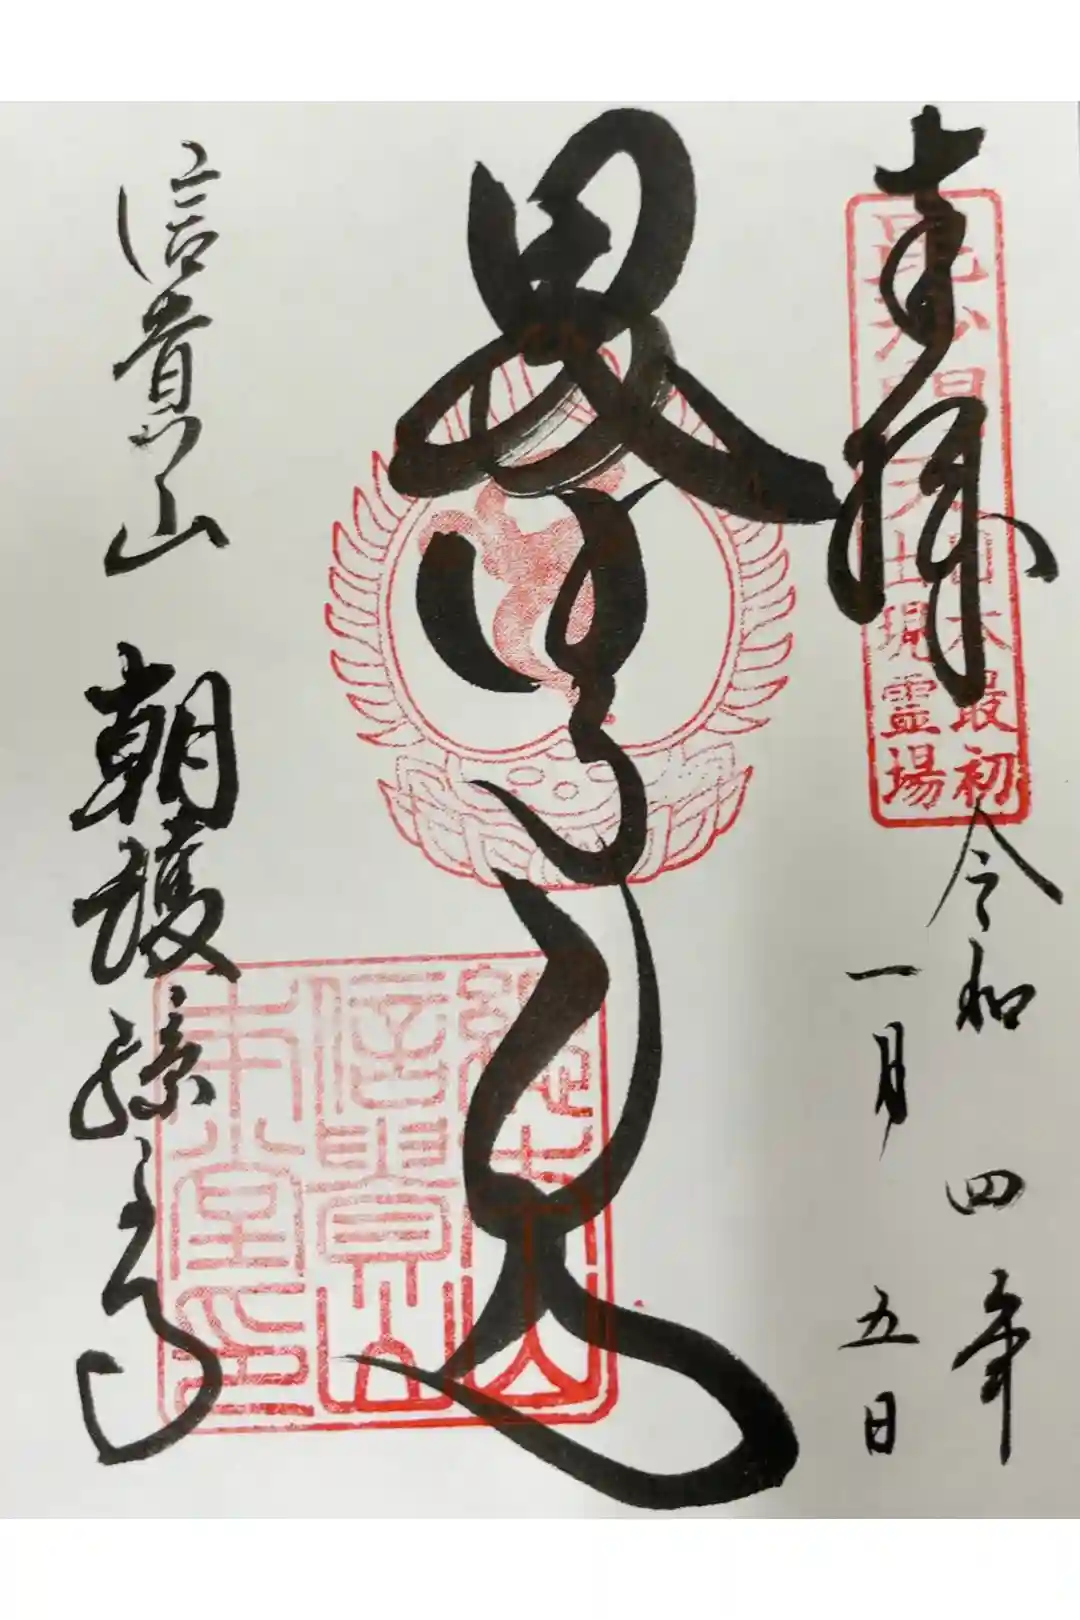 奉拝
毘沙門天王
日本最初
出現霊場
令和四年
一月五日
毘沙門天王
總本山
信貴山
本堂印
信貴山 朝護孫子寺